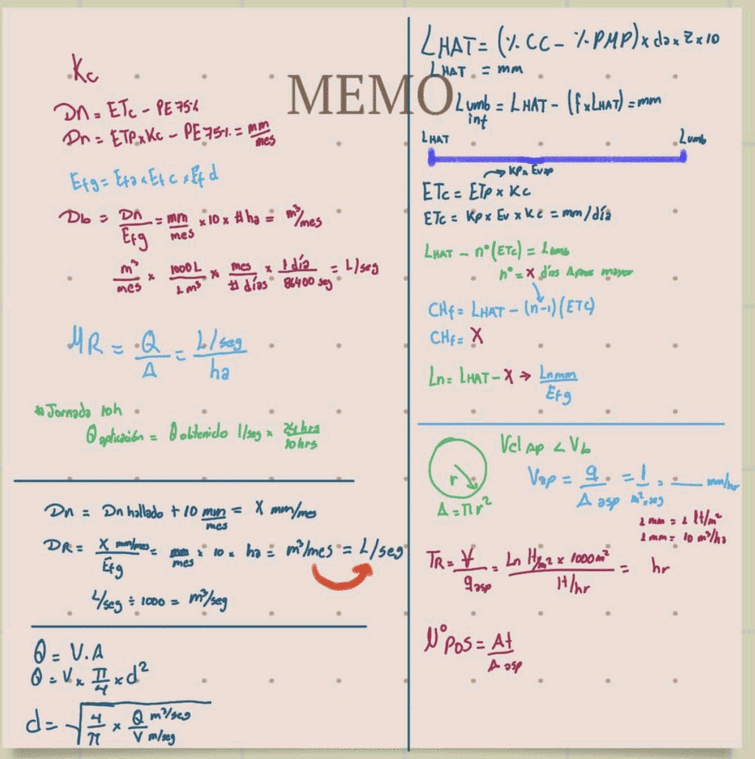 MEMO
Kc
Dn = ETc - PE 75%
Dn = ETP x Kc - PE 75% = mm/mes
Efg = Efa x Efc x Efd
Db = Dn/Efg = mm/mes x 10 x # ha = m³/mes
m³/mes x 1000 L/1 m³ x mes/# días x 1 día/86400 seg = L/seg
MR = Q/A = L/seg/ha
Jornada 10h
Q aplicación = Q obtenido l/seg x 24 hrs/10 hrs
Dn = Dn hallado + 10 mm/mes = X mm/mes
DR = X mm/mes/Efg = mm/mes x 10 x ha = m³/mes = L/seg
L/seg ÷ 1000 = m³/seg
Q = V.A
Q = V x π/4 x d²
d = √4/π x Q m³/seg/V m/seg
LHAT = (% CC - % PMP) x da x Z x 10
LHAT = mm
Lumb int = LHAT - (f x LHAT) = mm
LHAT Lumb
Kp x Evap
ETc = ETP x Kc
ETc = Kp x Ev x Kc = mm/día
LHAT - n°(ETc) = Lumb
n° = x días Aprox mayor
CHf = LHAT - (n-1)(ETC)
CHf = X
Ln = LHAT - X → Ln mm/Efg
r
A = πr²
Vel Ap < Vb
Vap = q/A asp = l/m².seg = ___ mm/hr
1 mm = 1 lt/m²
1 mm = 10 m³/ha
TR = V/qasp = Ln lt/m² x 1000 m²/lt/hr = hr
N° pos = At/A asp